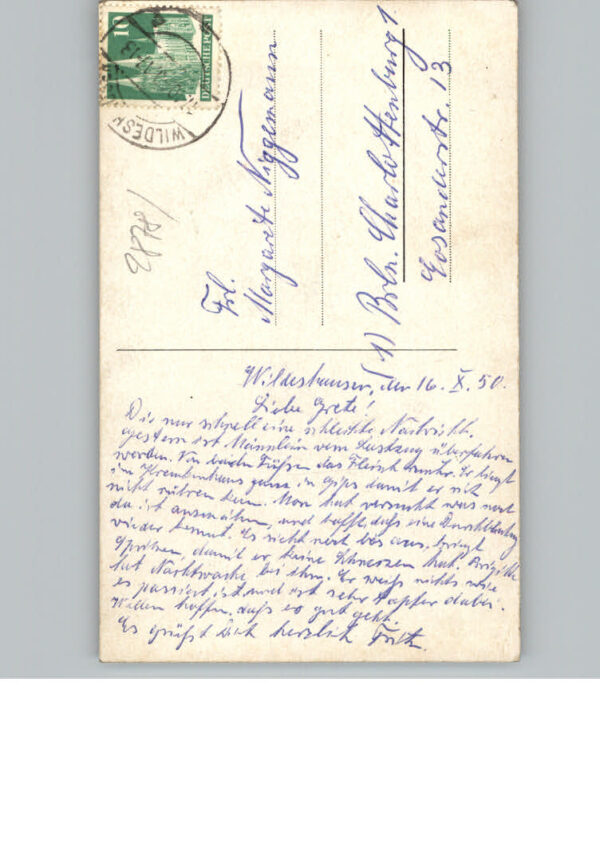 10
DEUTSCHE POST
WILDESH
2878/
Frl.
Margarete Niggemann
1) Brln. Charlottenburg 1.
Eosanderstr. 13
Wildeshausen, der 16. X. 50.
Liebe Grete!
Dir nur schnell eine schlechte Nachricht.
gestern ist Männlein vom Lastzug überfahren
worden. Von beiden Füßen das Fleisch runter. Er liegt
im Krankenhaus ganz in Gips damit er sich
nicht rühren kann. Man hat versucht was noch
da ist anzunähen, und hofft, daß eine Durchblutung
wieder kommt. Es sieht noch bös aus, kriegt
Spritzen, damit er keine Schmerzen hat. Brigitte
hat Nachtwache bei ihm. Er weiß nichts wie
es passiert ist, und ist sehr tapfer dabei.
Wollen hoffen, daß es gut geht.
Es grüßt Dich herzlich Fritz.